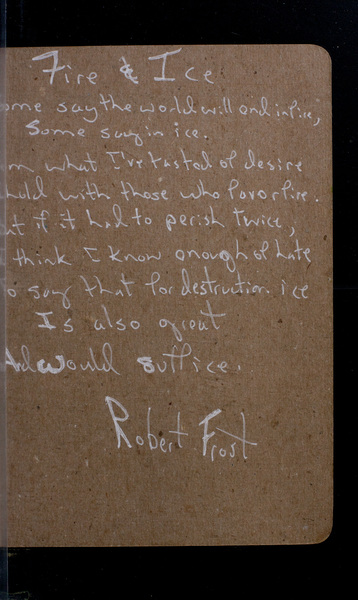 Fire & Ice
ome say the world will end in fire,
Some say in ice.
om what I've tasted of desire
hold with those who favor fire.
ut if it had to perish twice,
think I know enough of hate
o say that for destruction ice
Is also great
And would suffice.
Robert Frost